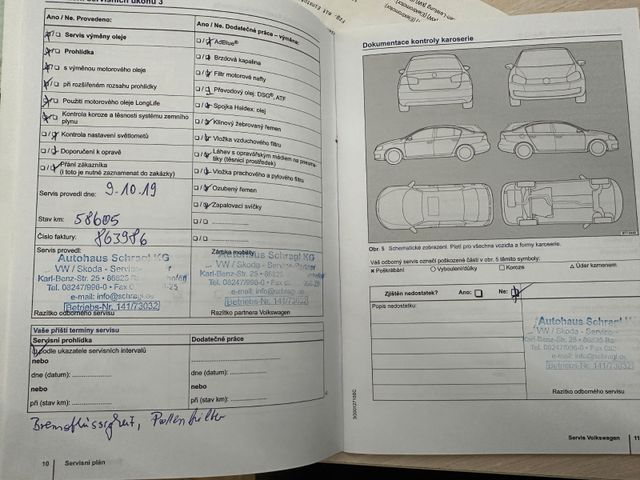 Ano / Ne. Provedeno:
Ano / Ne. Dodatečné práce – výměna:
Servis výměny oleje
AdBlue®
Prohlídka
Brzdová kapalina
s výměnou motorového oleje
Filtr motorové nafty
při rozšířeném rozsahu prohlídky
Převodový olej: DSG®, ATF
Použití motorového oleje LongLife
Spojka Haldex: olej
Kontrola koroze a těsnosti systému zemního
plynu
Klínový žebrovaný řemen
Kontrola nastavení světlometů
Vložka vzduchového filtru
Doporučení k opravě
Láhev s opravářským médiem na pneuma-
tiky (těsnicí prostředek)
Přání zákazníka
(i toto je nutné zaznamenat do zakázky)
Vložka prachového a pylového filtru
Ozubený řemen
Zapalovací svíčky
Servis provedl dne: 9.10.19
Stav km: 58605
Číslo faktury: 863986
Servis provedl:
Záruka mobility:
Autohaus Schragl KG
VW / Skoda - Service
Karl-Benz-Str. 25 • 86825
Tel. 08247/998-0 • Fax
e-mail: info@schragl
Betriebs-Nr. 141/73032
Razítko odborného servisu
Autohaus Schragl KG
VW / Skoda - Service
Karl-Benz-Str. 25 • 86825
Tel. 08247/998-0 • Fax
e-mail: info@schragl
Betriebs-Nr. 141/73032
Razítko partnera Volkswagen
Vaše příští termíny servisu
Servisní prohlídka
Dodatečné práce
podle ukazatele servisních intervalů
nebo
dne (datum):
dne (datum):
nebo
nebo
při (stav km):
při (stav km):
Bremsflüssigkeit, Pollenfilter
10
Servisní plán
Dokumentace kontroly karoserie
Obr. 5 Schematické zobrazení. Platí pro všechna vozidla a formy karoserie.
Váš odborný servis označí poškozené části v obr. 5 těmito symboly:
× Poškrábání
○ Vyboulení/důlky
□ Koroze
△ Úder kamenem
Zjištěn nedostatek?
Ano:
Ne:
Popis nedostatku:
Autohaus Schragl KG
VW / Skoda - Service
Karl-Benz-Str. 25 • 86825
Tel. 08247/998-0 • Fax
e-mail: info@schragl
Betriebs-Nr. 141/73032
Razítko odborného servisu
Servis Volkswagen
11